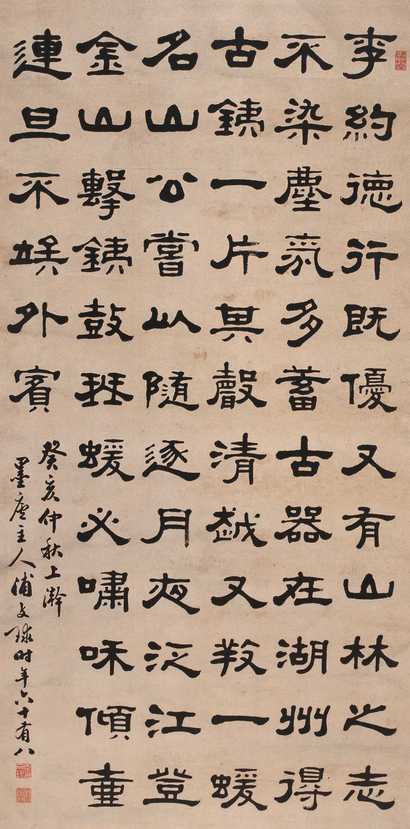 李約德行既優又有山林之志
不染塵氛多蓄古器在湖州得
古銕一片其聲清越又𢼝一蝯
名山公嘗以隨逐月夜泛江登
金山擊銕鼓珡蝯必嘯咊傾壺
連旦不竢外賓
癸亥仲秋上澣
墨廬主人浦文球時年六十有八